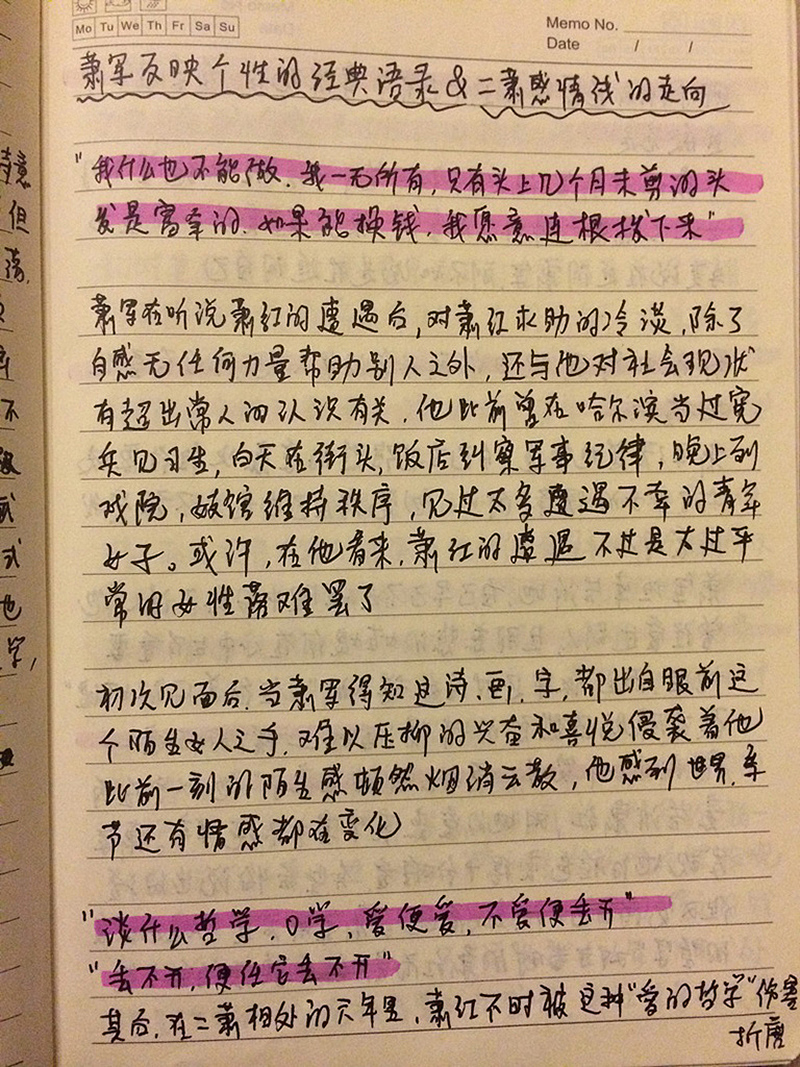 Mo Tu We Th Fr Sa Su
Memo No.
Date / /
萧军反映个性的经典语录&二萧感情线的走向
"我什么也不能做.我一无所有,只有头上几个月未剪的头
发是富幸的.如果能换钱,我愿意连根拔下来"
萧军在听说萧红的遭遇后,对萧红求助的冷淡,除了
自感无任何力量帮助别人之外,还与他对社会现状
有超出常人的认识有关.他此前曾在哈尔滨当过宪
兵见习生,白天在街头,饭店纠察军事纪律,晚上到
戏院,妓馆维持秩序,见过太多遭遇不幸的青年
女子。或许,在他看来,萧红的遭遇不过是太过平
常的女性落难罢了
初次见面后.当萧军得知这诗.画.字,都出自眼前这
个陌生女人之手.难以压抑的兴奋和喜悦侵袭着他
此前一刻的陌生感顿然烟消云散,他感到世界.季
节还有情感都在变化
"谈什么哲学,0学,爱便爱,不爱便丢开"
"丢不开,便任它丢不开"
其后.在二萧相处的六年里,萧红不时被这种"爱的哲学"伤害
折磨
意
但
落.
不
式
也
学,